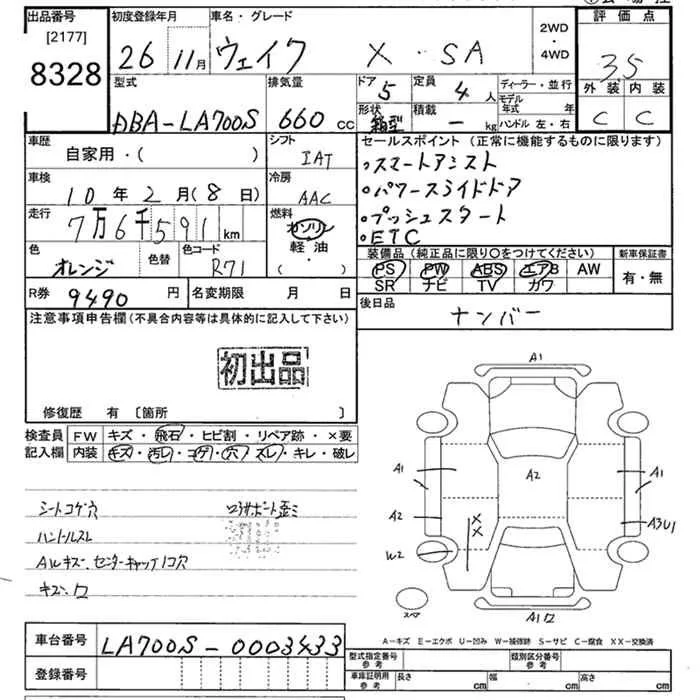 出品番号
[2177]
8328
初度登録年月
26 11月
車名・グレード
ウェイク X・SA
2WD
・
4WD
評価点
3.5
外装 内装
C C
型式
DBA-LA700S
排気量
660 cc
ドア
5
定員
4 人
形状
箱型
積載
- kg
ディーラー・並行
モデル年式 年
ハンドル 左・右
車歴
自家用・( )
シフト
IAT
セールスポイント (正常に機能するものに限ります)
・スマートアシスト
・パワースライドドア
・プッシュスタート
・ETC
車検
10年2月(8日)
冷房
AAC
走行
7万6千591km
燃料
ガソリン
軽・油
・( )
色
オレンジ
色替
色コード
R71
装備品 (純正品に限り○をつけてください)
新車保証書
PS PW ABS エアB AW
SR ナビ TV カワ
有・無
R券 9490円
名変期限 月 日
後日品
ナンバー
注意事項申告欄(不具合内容等は具体的に記入して下さい)
初出品
修復歴 有 〔箇所 〕
検査員記入欄
FW キズ・飛石・ヒビ割・リペア跡・×要
内装 キズ・汚レ・コゲ・穴・スレ・キレ・破レ
シートコゲ穴
ハンドルスレ
AWキズ、センターキャップ1コ穴
A1
A1
A2
A1
A2
A3U1
W2
X
X
スペア
A-キズ E-エクボ U-凹み W-補修跡 S-サビ C-腐食 XX-交換済
車台番号
LA700S-0003433
登録番号
型式指定番号 参考
類別区分番号 参考
車庫証明用 参考
長さ cm
幅 cm
高さ cm